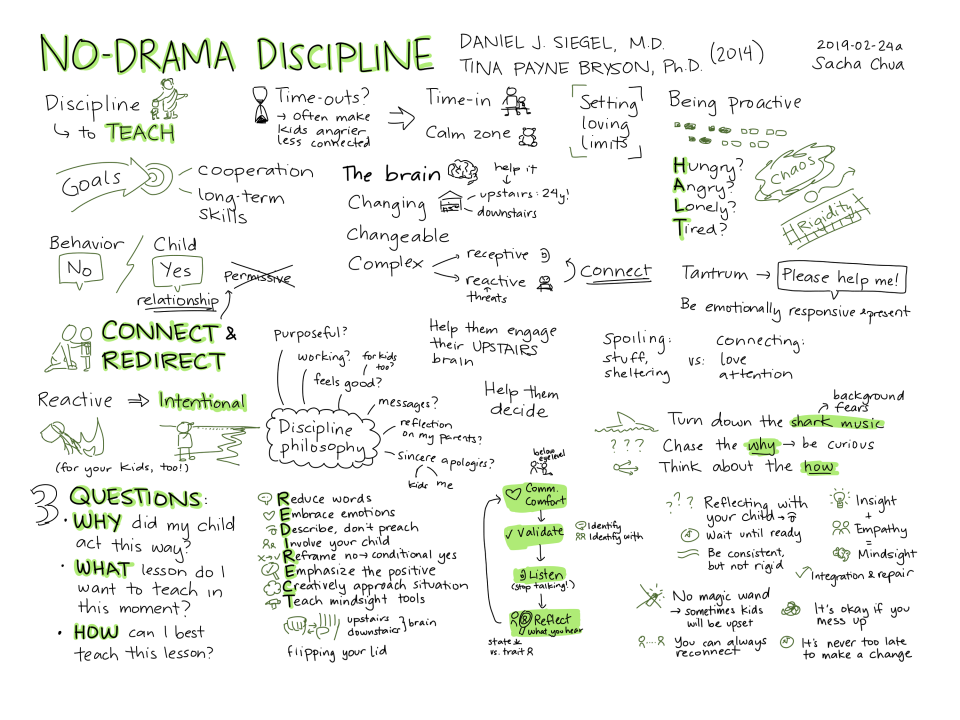 NO-DRAMA DISCIPLINE
DANIEL J. SIEGEL, M.D.
TINA PAYNE BRYSON, Ph.D. (2014)
2019-02-24a
Sacha Chua
Discipline
↳ to TEACH
Time-outs?
→ often make
kids angrier
less connected
Time-in
Calm zone
Setting
loving
limits
Being proactive
Hungry?
Angry?
Lonely?
Tired?
Chaos
Rigidity
Goals
cooperation
long-term
skills
The brain
help it
Changing
upstairs: 24y!
downstairs
Changeable
Complex
receptive
reactive
threats
Connect
Behavior
No
Child
Yes
relationship
permissive
Tantrum → Please help me!
Be emotionally responsive & present
CONNECT &
REDIRECT
purposeful?
working?
for kids
too?
feels good?
messages?
reflection
on my parents?
Sincere apologies?
kids me
Discipline
philosophy
Help them engage
their UPSTAIRS
brain
Help them
decide
Spoiling:
stuff,
sheltering
vs:
connecting:
love
attention
Reactive ⇒ Intentional
(for your kids, too!)
background
fears
Turn down the shark music
??? Chase the why → be curious
Think about the how
3 QUESTIONS:
• WHY did my child
act this way?
• WHAT lesson do I
want to teach in
this moment?
• HOW can I best
teach this lesson?
Reduce words
Embrace emotions
Describe, don't preach
Involve your child
Reframe no → conditional yes
Emphasize the positive
Creatively approach situation
Teach mindsight tools
upstairs
downstairs
brain
flipping your lid
below
eye level
Comm.
Comfort
Validate
Identify
Identify with
Listen
(stop talking!)
Reflect
what you hear
state
vs. trait
??? Reflecting with
your child →
Wait until ready
Be consistent,
but not rigid
Insight
+
Empathy
=
Mindsight
Integration & repair
No magic wand
→ sometimes kids
will be upset
It's okay if you
mess up
You can always
reconnect
It's never too late
to make a change